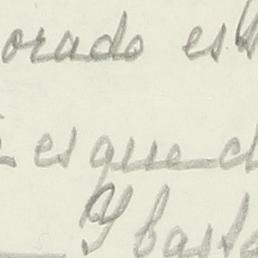 orado es
es que
Y basta